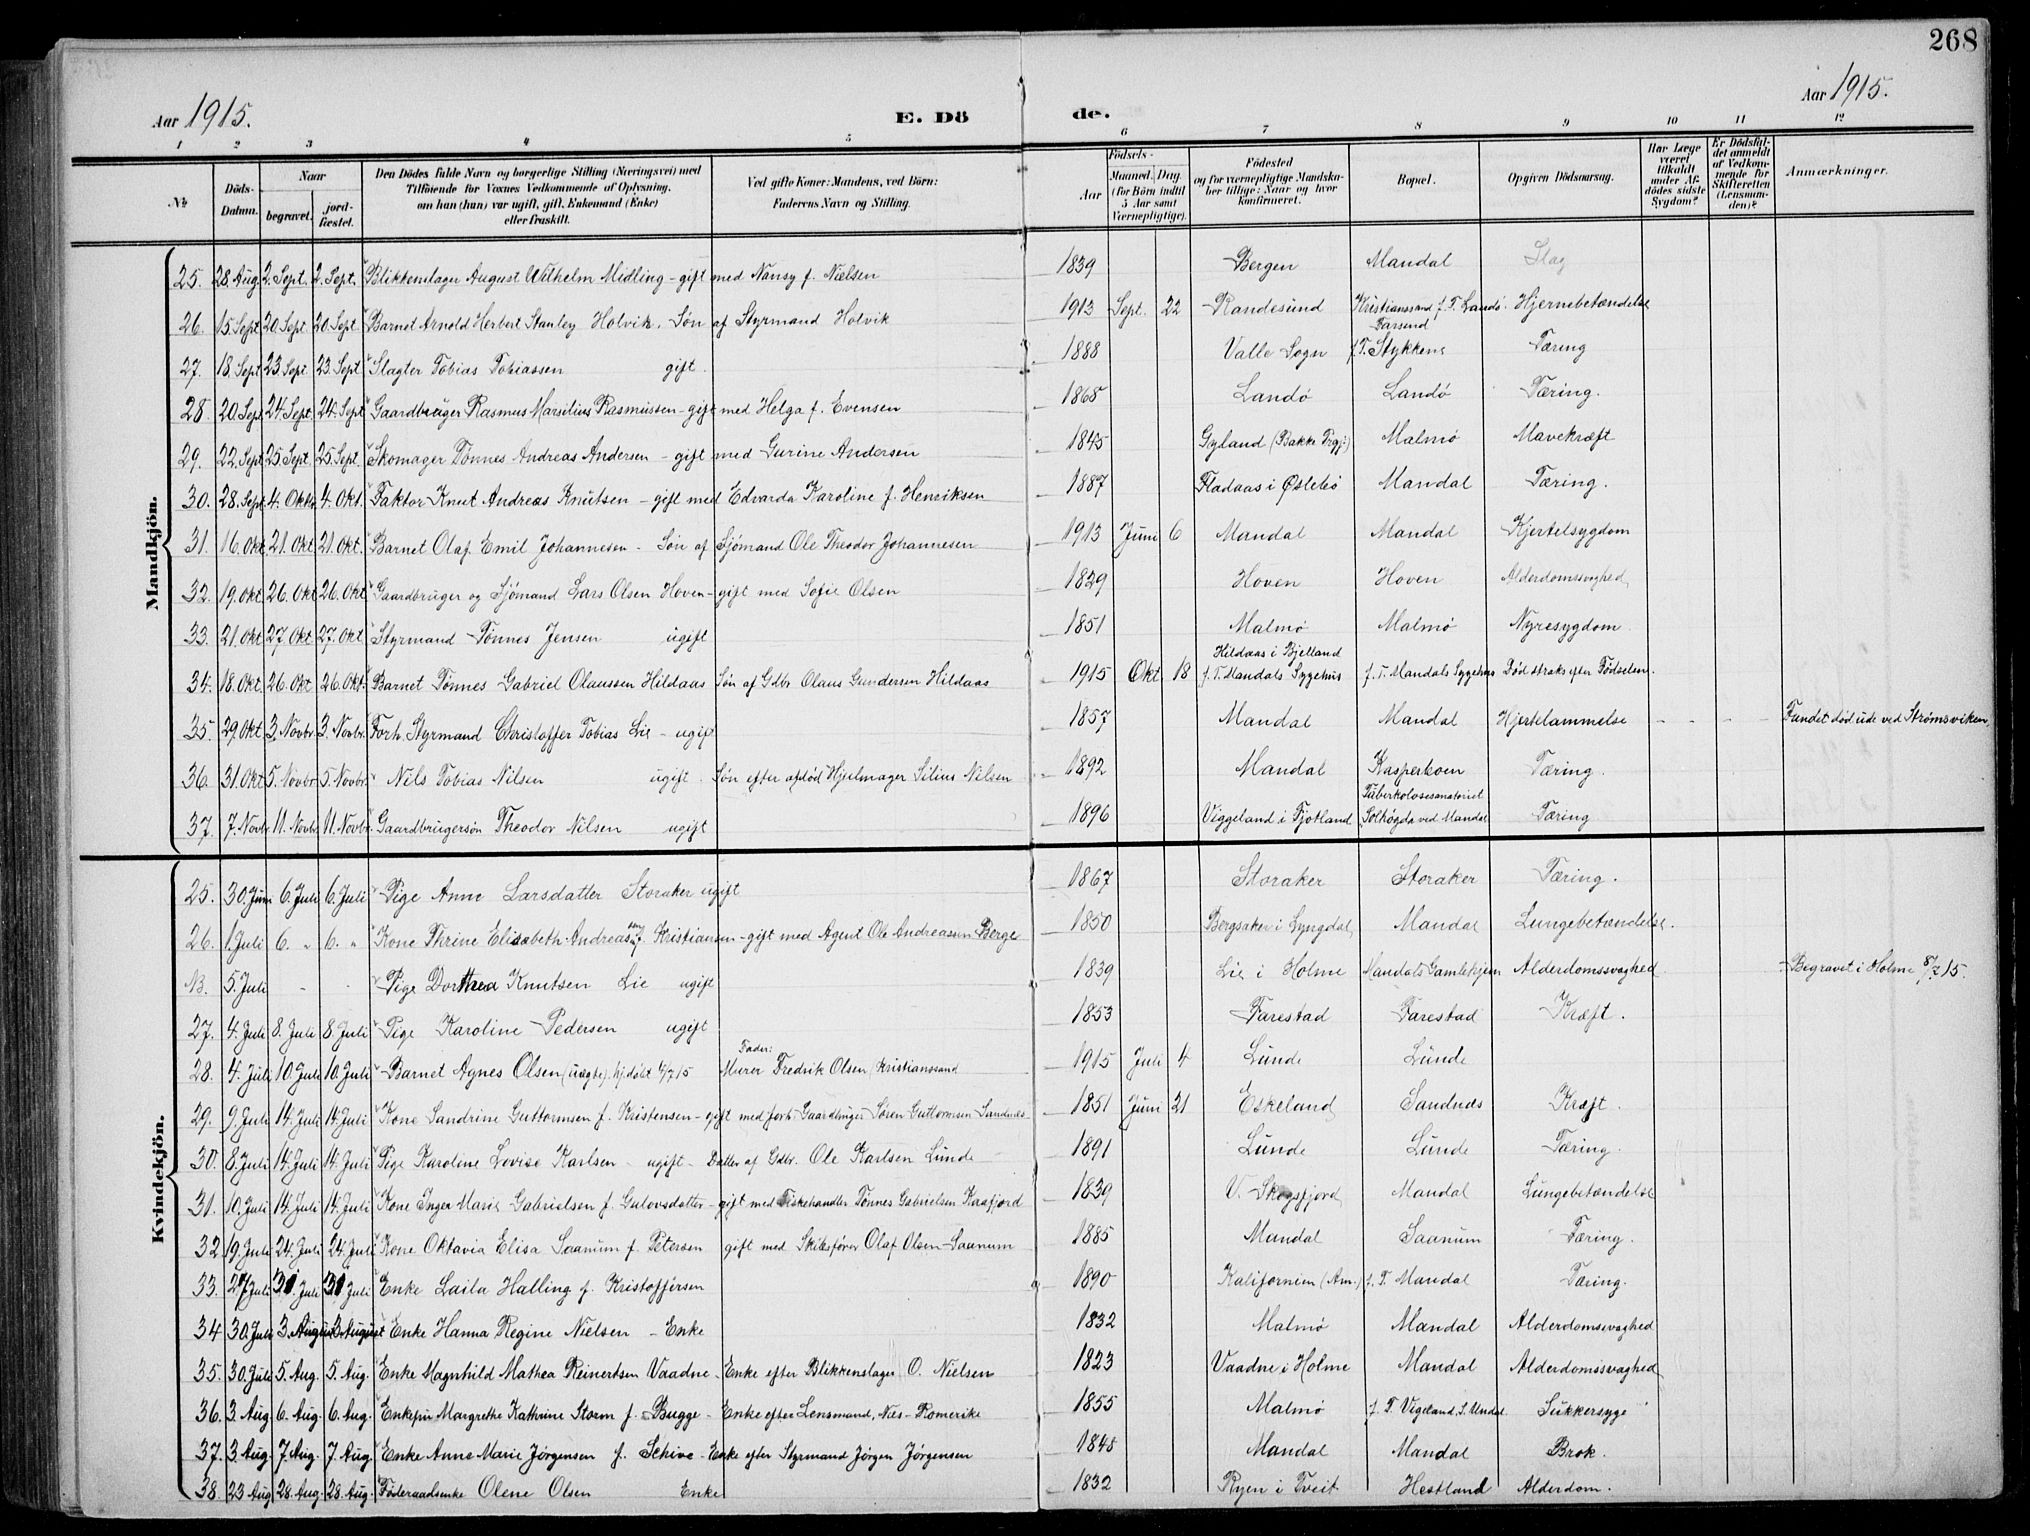 268
Aar 1915.
E. Dö de.
Aar 1915.
1 2 3 4 5 6 7 8 9 10 11 12
№
Döds-Datum.
Naar
begravet.
jord-fæstet.
Den Dödes fulde Navn og borgerlige Stilling (Næringsvei) med
Tilföiende for Voxnes Vedkommende af Oplysning,
om han (hun) var ugift, gift, Enkemand (Enke)
eller fraskilt.
Ved gifte Koner: Mandens, ved Börn:
Faderens Navn og Stilling.
Födsels-
Aar
Maaned. Dag.
(for Börn indtil
5 Aar samt
Værnepligtige).
Födested
og for værnepligtige Mandska-
ber tillige: Naar og hvor
konfirmeret.
Bopæl.
Opgiven Dödsaarsag.
Har Læge
været
tilkaldt
under Af-
dödes sidste
Sygdom?
Er Dödsfal-
det anmeldt
af Vedkom-
mende for
Skifteretten
(Lensman-
den)?
Anmærkninger.
Mandkjön.
25. 28. Aug. 2. Sept. 2. Sept. Blikkenslager August Wilhelm Midling - gift med Nansy f. Nielsen 1839 Bergen Mandal Slag
26. 15. Sept. 20. Sept. 20. Sept. Barnet Arnold Herbert Stanley Holvik. Søn af Styrmand Holvik 1913 Sept. 22 Randesund Kristianssand f. T. Landø. Hjernebetændelse
27. 18. Sept 23 Sept. 23. Sept. Slagter Tobias Tobiassen gift. 1888 Valle Sogn Farsund f. T. Stykkene Tæring
28. 20. Sept. 24. Sept. 24. Sept. Gaardbruger Rasmus Marsilius Rasmussen - gift med Helga f. Evensen 1865 Landø Landø Tæring.
29. 22. Sept. 25. Sept. 25. Sept. Skomager Tønnes Andreas Andersen - gift med Gurine Andersen 1845 Gyland (Bakke Prgj.) Malmø Mavekræft
30. 28. Sept. 4. Oktb. 4. Okt. Faktor Knut Andreas Knutsen - gift med Edvarda Karoline f. Henriksen 1887 Fladaas i Øslebø Mandal Tæring.
31. 16. Okt. 21. Okt. 21. Okt. Barnet Olaf Emil Johannesen - Søn af Sjömand Ole Theodor Johannesen 1913 Juni 6 Mandal Mandal Kjertelsygdom
32. 19. Okt. 26. Okt. 26. Okt. Gaardbruger og Sjömand Lars Olsen Hoven - gift med Sofie Olsen 1829 Hoven Hoven Alderdomssvaghed
33. 21. Okt 27. Okt 27. Okt Styrmand Tønnes Jensen ugift 1851 Malmø Malmø Nyresygdom
34. 18. Okt. 26. Okt 26. Okt. Barnet Tønnes Gabriel Olaussen Hildaas Søn af Gdbr. Olaus Gundersen Hildaas 1915 Okt. 18 Hildaas i Bjelland f. T. Mandals Sygehus f. T. Mandals Sygehus Død straks efter Fødselen.
35. 29. Okt 3. Novbr. 3. Novbr. Forh. Styrmand Christoffer Tobias Lie - ugift 1857 Mandal Mandal Hjertelammelse - - - Fundet død ude ved Strømsviken
36. 31. Okt. 5. Novbr. 5. Novbr. Nils Tobias Nilsen ugift. Søn efter afdød Hjulmager Silius Nilsen 1892 Mandal Kasperkoen Tæring.
37. 7. Novbr. 11. Novbr. 11. Novbr. Gaardbrugersøn Theodor Nilsen ugift 1896 Viggeland i Fjotland Tuberkolosesanatoriet Solhøgda ved Mandal Tæring
Kvindekjön.
25. 30. Juni 6. Juli 6. Juli Pige Anne Larsdatter Storaker ugift 1867 Storaker Storaker Tæring.
26. 1. Juli 6. „ 6. „ Kone Thrine Elisabeth Andreassen f. Kristiansen - gift med Agent Ole Andreassen Berge 1850 Bergsaker i Lyngdal Mandal Lungebetændelse.
N. 5. Juli - - Pige Dorthea Knutsen Lie ugift 1839 Lie i Holme Mandals Gamlehjem Alderdomssvaghed - Begravet i Holme 8/7 15.
27. 4. Juli 8. Juli 8. Juli Pige Karoline Pedersen ugift 1853 Farestad Farestad Kræft.
28. 4. Juli 10. Juli 10. Juli Barnet Agnes Olsen (uægte). hj.døbt 4/7 15 Fader: Murer Fredrik Olsen, Kristianssand 1915 Juli 4 Lunde Lunde
29. 9. Juli 14. Juli 14. Juli Kone Sandrine Guttormsen f. Kristensen - gift med forh. Gaardbruger Søren Guttormsen Sandnæs 1851 Juni 21 Eskeland Sandnæs Kræft.
30. 8. Juli 14. Juli 14. Juli Pige Karoline Lovise Karlsen - ugift - Datter af Gdbr. Ole Karlsen Lunde 1891 Lunde Lunde Tæring.
31. 10. Juli 14. Juli 14. Juli Kone Inger Marie Gabrielsen f. Gulovsdatter - gift med Fiskehandler Tønnes Gabrielsen Kaafjord 1839 V. Skogsfjord Mandal Lungebetændelse
32 19. Juli 24. Juli 24. Juli Kone Oktavia Elisa Saanum f. Petersen gift med Skibsfører Olaf Olsen Saanum 1885 Mandal Saanum Tæring.
33. 27 Juli 31. Juli 31 Juli Enke Laila Halling f. Kristoffersen 1890 Kalifornien (Am.) f. T. Mandal Tæring.
34 30. Juli 3. August 3 August Enke Hanna Regine Nielsen - Enke 1832 Malmø Mandal Alderdomssvaghed
35. 30. Juli 5. Aug. 5. Aug. Enke Magnhild Mathea Reinertsen Vaadne - Enke efter Blikkenslager O. Nielsen 1823 Vaadne i Holme Mandal Alderdomssvaghed
36. 3. Aug. 6. Aug. 6. Aug. Enkefru Margrethe Kathrine Storm f. Bugge - Enke efter Lensmand, Næs - Romerike 1855 Malmø f. T. Vigeland, S. Undal Sukkersyge
37. 3. Aug. 7. Aug. 7. Aug. Enke Anne Marie Jørgensen f. Schive - Enke efter Styrmand Jørgen Jørgensen 1845 Mandal Mandal Brok.
38. 23 Aug 28. Aug. 28. Aug. Føderaadsenke Olene Olsen Enke 1832 Ryen i Tveit Hestland Alderdom.